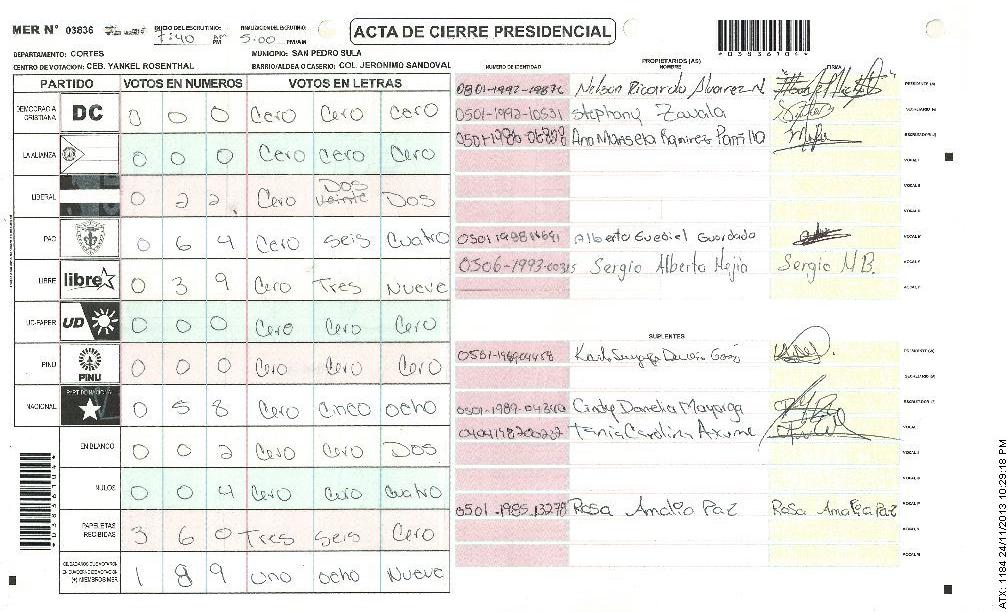 MER N° 03836 INICIO DEL ESCRUTINIO: 7:40 AM FINALIZACION DEL ESCRUTINIO: 5:00 PM/AM
ACTA DE CIERRE PRESIDENCIAL
DEPARTAMENTO: CORTES MUNICIPIO: SAN PEDRO SULA
CENTRO DE VOTACION: CEB. YANKEL ROSENTHAL BARRIO/ALDEA O CASERIO: COL. JERONIMO SANDOVAL
PARTIDO VOTOS EN NUMEROS VOTOS EN LETRAS
DEMOCRACIA CRISTIANA DC 0 0 0 Cero Cero Cero
LA ALIANZA 0 0 0 Cero Cero Cero
LIBERAL 0 2 2 Cero Dos Veinte Dos
PAC 0 6 4 Cero Seis Cuatro
LIBRE libre 0 3 9 Cero Tres Nueve
UD-FAPER UD 0 0 0 Cero Cero Cero
PINU PINU 0 0 0 Cero Cero Cero
NACIONAL PARTIDO NACIONAL 0 5 8 Cero Cinco Ocho
EN BLANCO 0 0 2 Cero Cero Dos
NULOS 0 0 4 Cero Cero Cuatro
PAPELETAS RECIBIDAS 3 6 0 Tres Seis Cero
(+) MIEMBROS MER 1 8 9 uno ocho Nueve
PROPIETARIOS (AS)
NUMERO DE IDENTIDAD NOMBRE FIRMA
Nelson Ricardo Alvarez N. PRESIDENTE (A)
0501-1992-10531 Stephany Zavala SECRETARIO (A)
Ana Ramirez ESCRUTADOR (A)
VOCAL I
VOCAL II
Alberto Guardado
Sergio Alberto Mejia Sergio M B.
SUPLENTES
PRESIDENTE (A)
SECRETARIO (A)
Cindy Daniela Mayorga ESCRUTADOR (A)
Tania Carolina
0501-1985-13279 Rosa Amalia Paz Rosa Amalia Paz
03836104
ATX: 1184 24/11/2013 10:29:18 PM